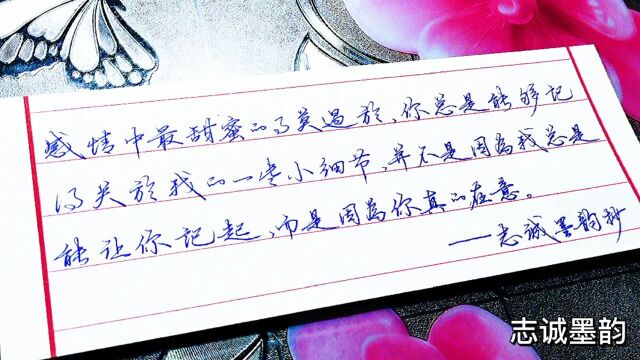 感情中最甜蜜的莫過於,你总是能够记
得关於我的一些小细节,并不是因為我总是
能让你记起,而是因為你真的在意。
——志诚墨韵抄
志诚墨韵